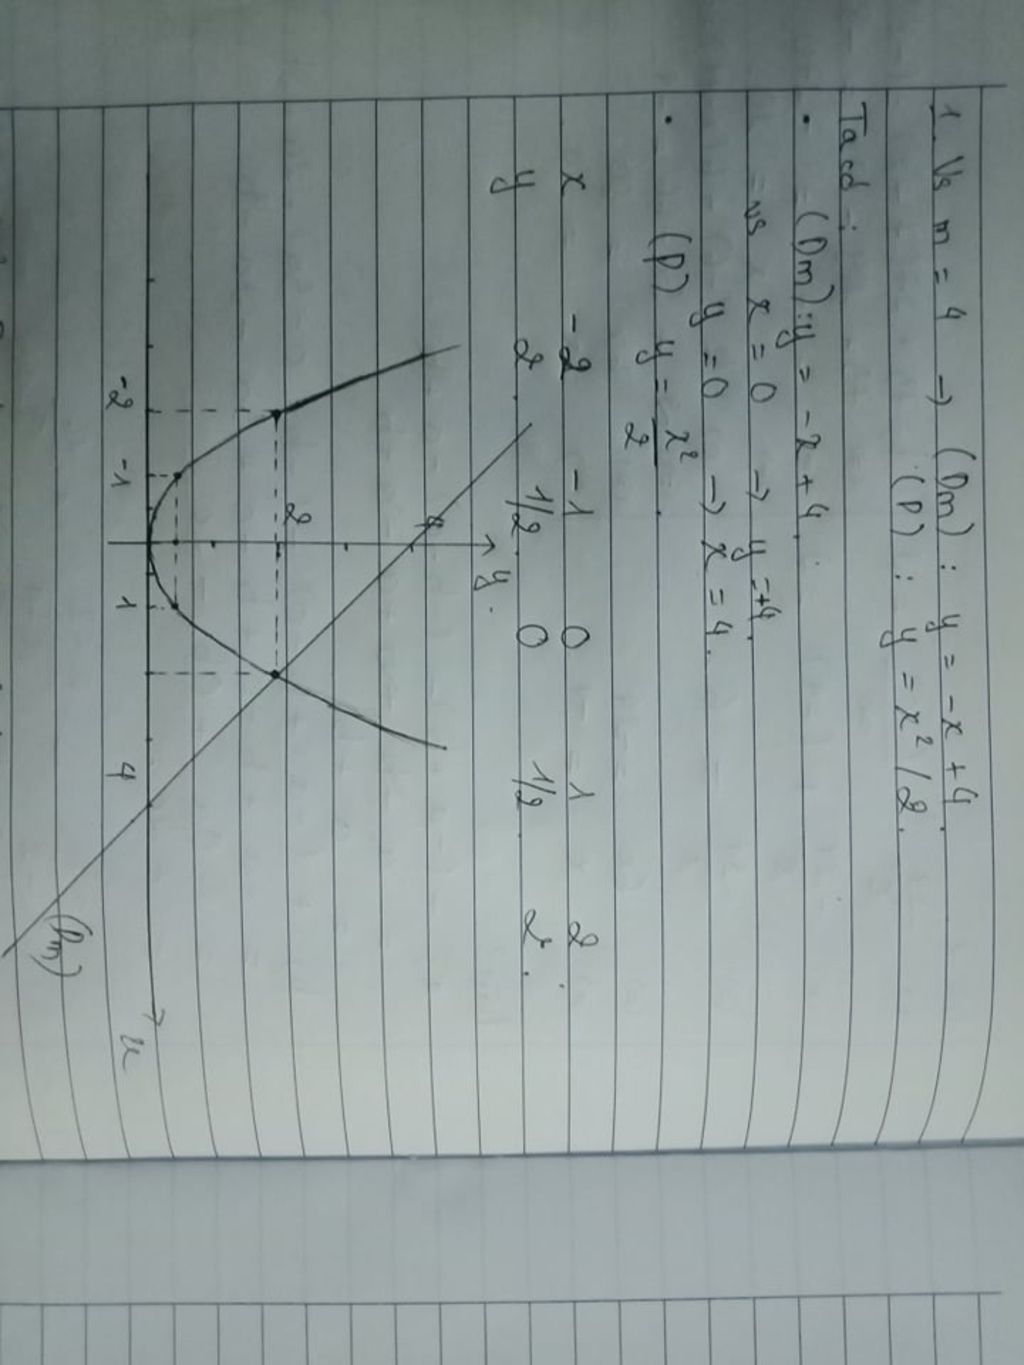 1. Vs m = 4 → (Dm) : y = -x + 4.
(P) : y = x² / 2.
Ta có :
• (Dm) : y = -x + 4.
vs x = 0 → y = +4.
y = 0 → x = 4.
• (P) y = x²/2.
x -2 -1 0 1 2
y 2 1/2 0 1/2 2.
y
4
2
-2 -1 1 4 x
(Dm)